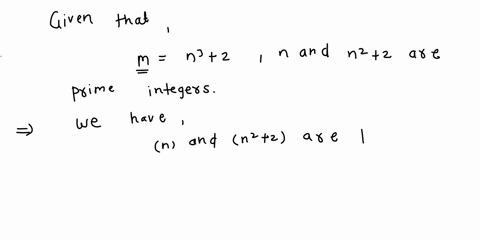 Given that,
m = n³+2 , n and n²+2 are
prime integers.
⇒ We have,
(n) and (n²+2) are |